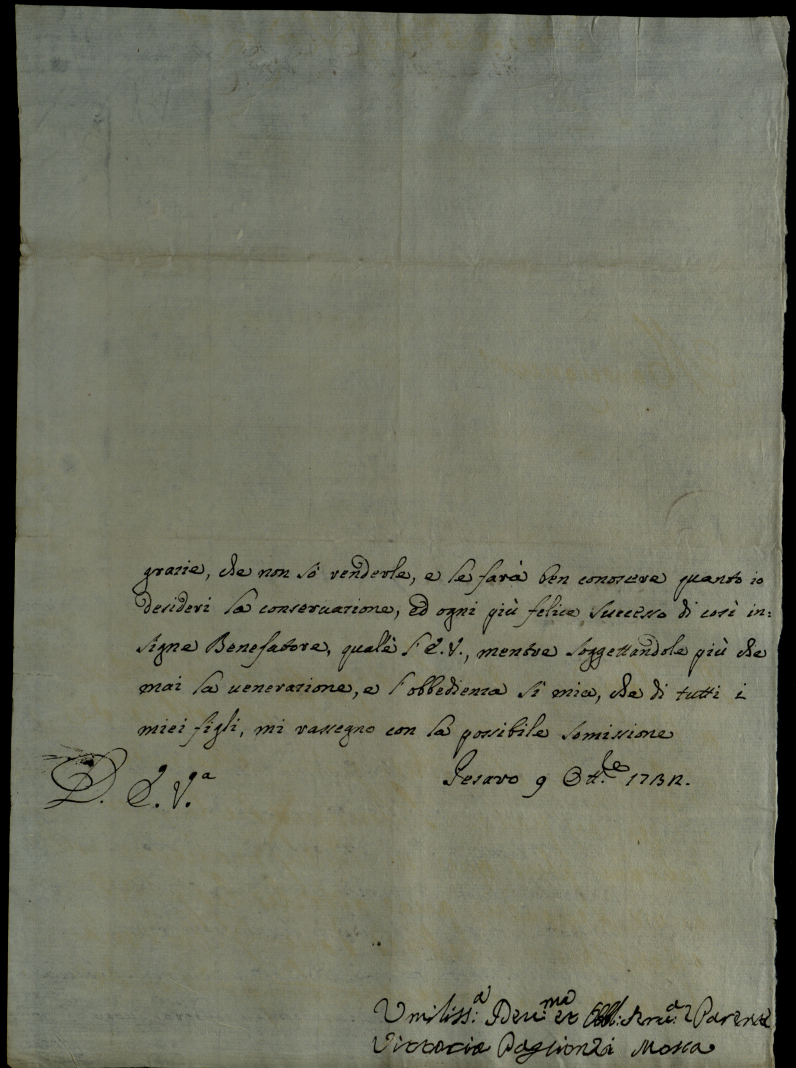 grazie, che non sò renderle, e le farà ben conoscere quanto io
desideri la conservazione, ed ogni più felice successo di così in=
signe Benefatore, qual'è l'E.V., mentre soggettandole più che
mai la venerazione, e l'obbedienza sì mia, che di tutti i
miei figli, mi rassegno con la possibile somissione
D. E. V.ª
Pesaro 9 Ott.re 1732.
Umiliss:ª Deu:ma et Obbl: Seru:ª e Parente
Vittoria Mosca